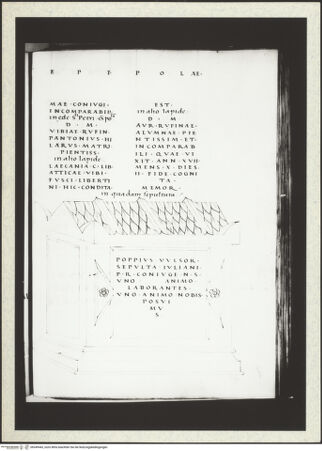 E P I P O L AE
MAE CONIVGI
INCOMPARABIL
in ede Sti Petri
D · M
VIBIAE · RVFIN
PANTONIVS · HI
LARVS · MATRI
PIENTISS
in alto lapide
LAECANIA · C · LIB
ATTICAE · VIBI
FVSCI · LIBERTI
NI · HIC · CONDITA
EST
in alto lapide
D · M
AVR · RVFINAE
ALVMNAE · PIE
NTISSIM · ET
INCOMPARAB
ILI · QVAE · VI
XIT · ANN · XVII
MENS · X · DIES
II · FIDE · COGNI
TA
MEMOR
in quadam sepultura
POPPIVS VVLSOR
SEPVLTA · IVLIANI
P · R · CONIVGI · N · S
VNO ANIMO
LABORANTES
VNO · ANIMO · NOBIS
POSVI
MV
S